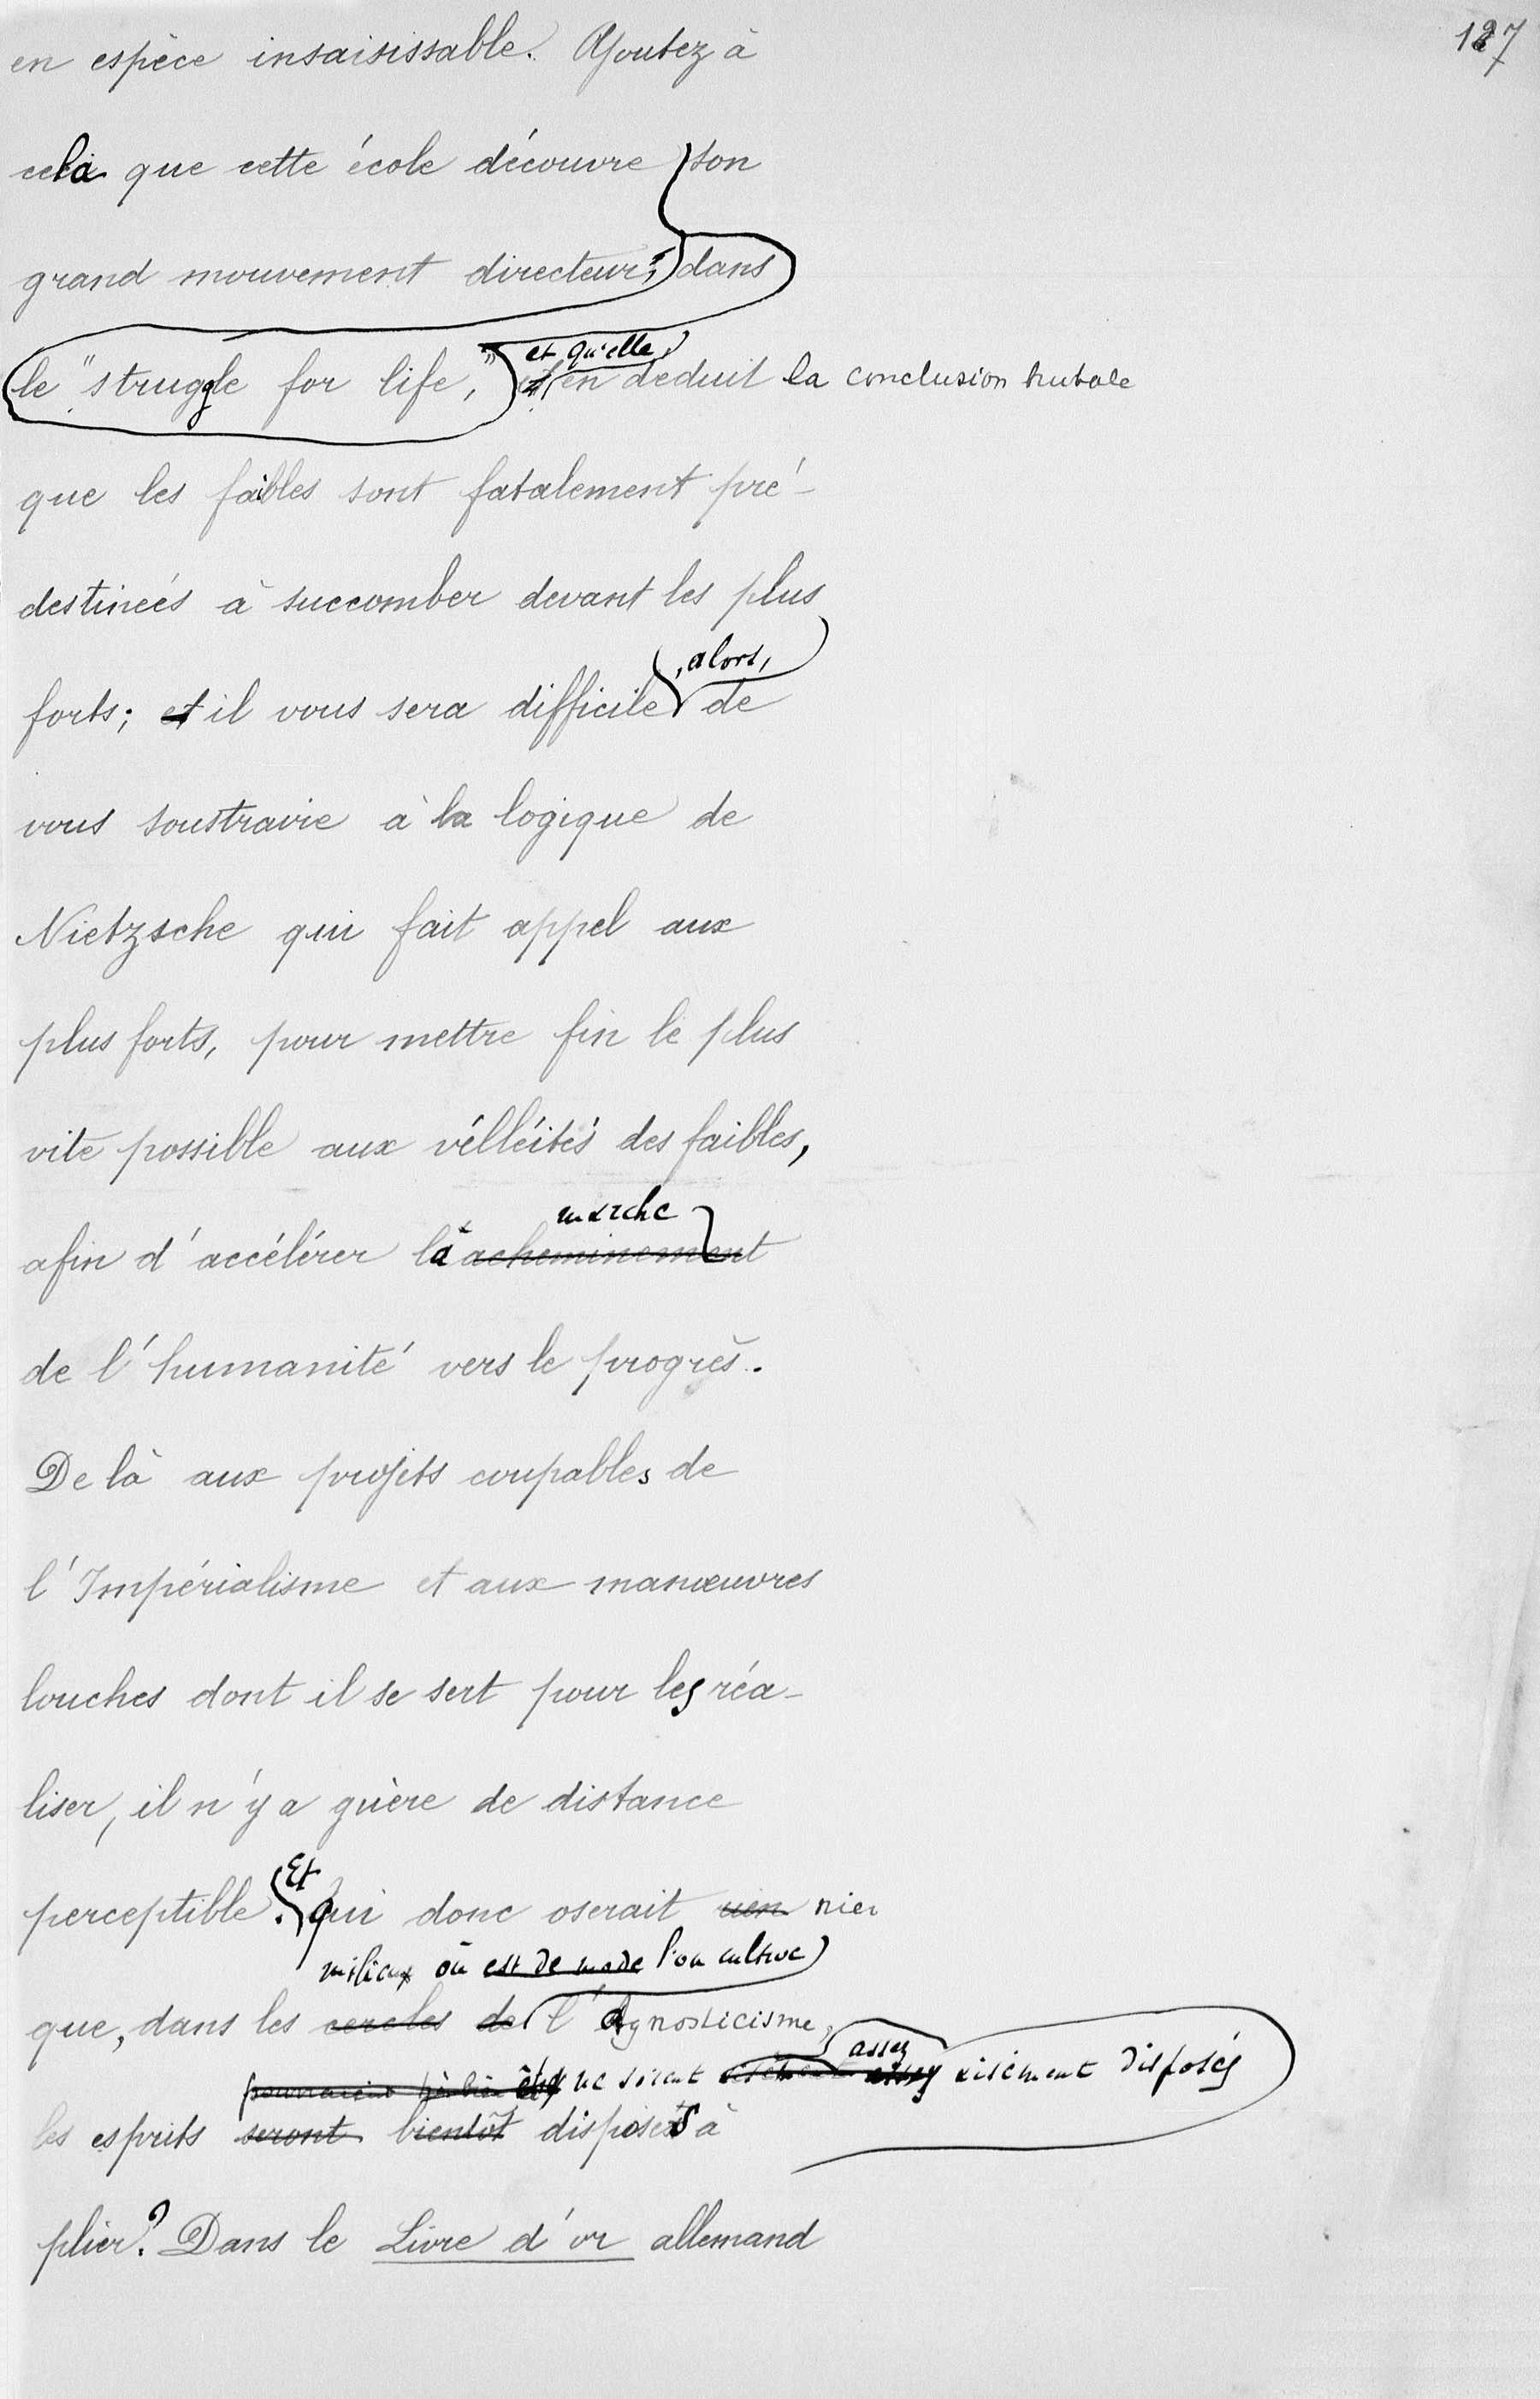 127
en espèce insaisissable. Ajoutez à
cela que cette école découvre son
grand mouvement directeur, dans
le "struggle for life," et qu'elle en deduit la conclusion brutale
que les faibles sont fatalement pré-
destinées à succomber devant les plus
forts; et il vous sera difficile, alors, de
vous soustraire à la logique de
Nietzsche qui fait appel aux
plus forts, pour mettre fin le plus
vite possible aux vélléités des faibles,
marche
afin d'accélérer la acheminement
de l'humanité vers le progrès.
De là aux projets coupables de
l'Impérialisme et aux manœuvres
louches dont il se sert pour les réa-
liser, il n'y a guère de distance
perceptible. Et qui donc oserait rien nier
milieux où est de mode l'on cultive
que, dans les cercles de l'Agnosticisme,
ne soient assez aisément disposés
les esprits seront bientôt disposés à
plier? Dans le Livre d'or allemand